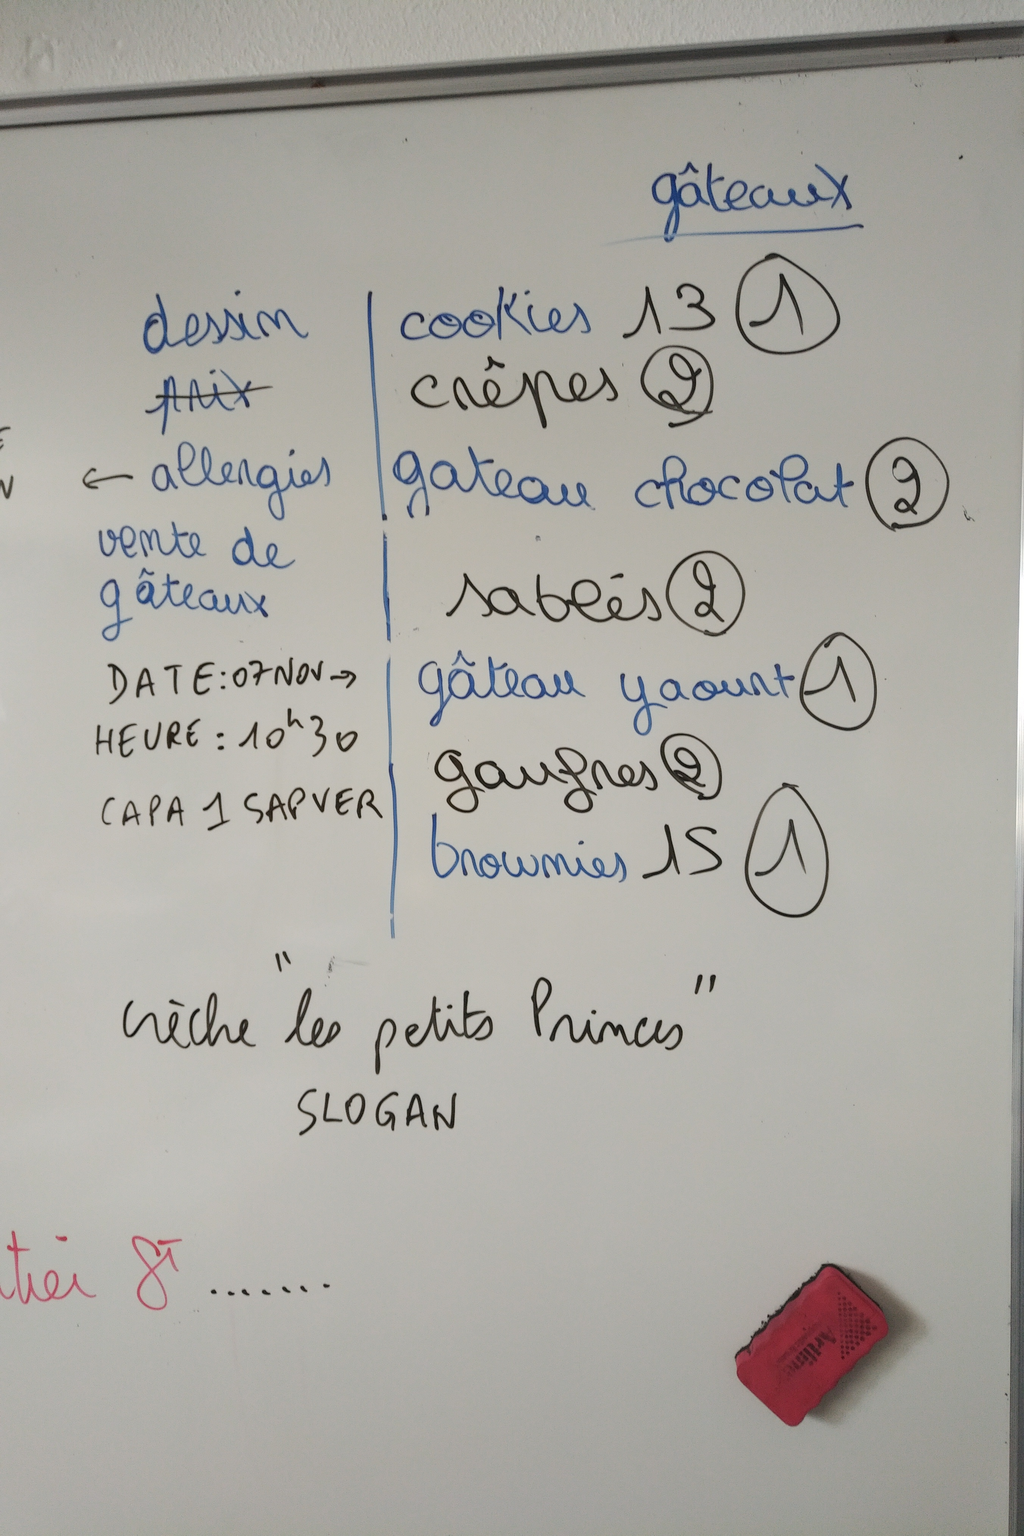 gâteaux
dessin
prix
← allergies
vente de
gâteaux
DATE:07 NOV→
HEURE : 10h30
CAPA 1 SAPVER
cookies 13 1
crêpes 2
gâteau chocolat 2
sablés 2
gâteau yaourt 1
gaufres 2
brownies 15 1
crèche "les petits Princes"
SLOGAN
.......
Artline